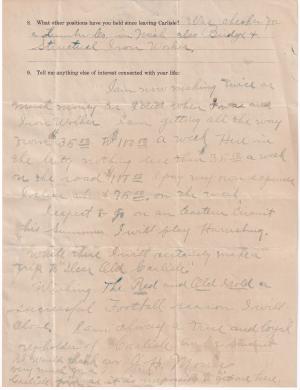 8. What other positions have you held since leaving Carlisle? Was checker for
a Lumber Co. in Mich also Bridge &
Structural Iron Worker
9. Tell me anything else of interest connected with your life:
I am now making twice as
much money as I did when I was an
Iron Worker I am getting all the way
from $35.00 to $100.00 a week Here in
the city nothing less than $35.00 a week
on the road $100.00 I pay my own expenses
on the road.
I expect to go on an Eastern Circuit
this Summer I will play Harrisburg.
While there I will certainly make a
trip to "Dear Old Carlisle"
Wishing The Red and Old Gold a
successful Football season I will
close. I am always a true and loyal
upholder of Carlisle